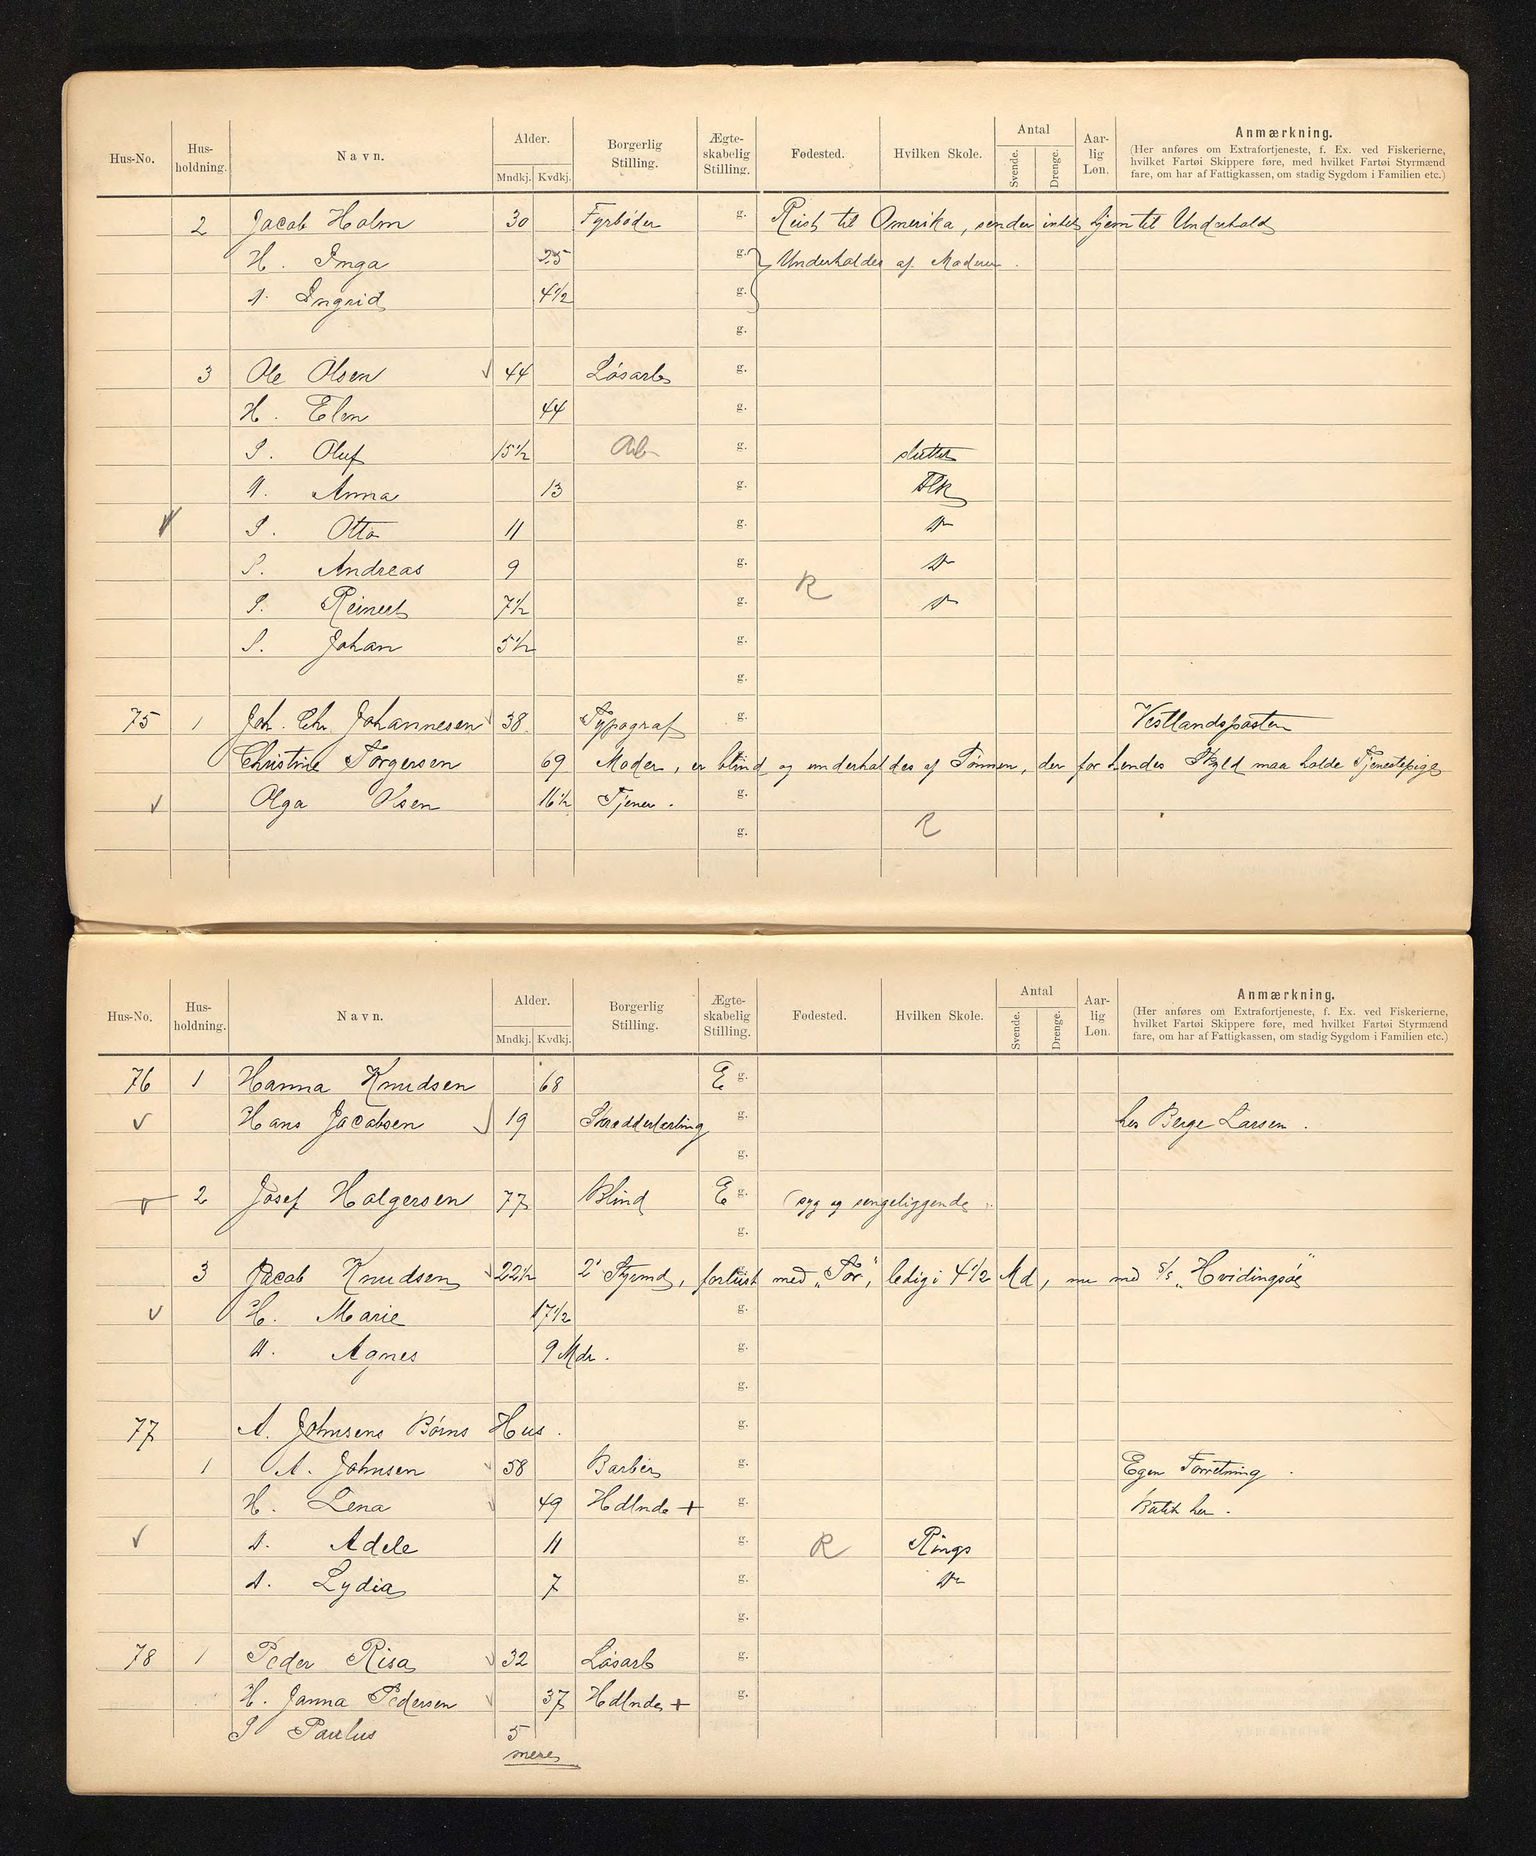 Hus-No. Hus-holdning. Navn. Alder. Mndkj. Kvdkj. Borgerlig Stilling. Ægte-skabelig Stilling. Fødested. Hvilken Skole. Antal Svende. Drenge. Aar-lig Løn. Anmærkning.
(Her anføres om Extrafortjeneste, f. Ex. ved Fiskerierne,
hvilket Fartøi Skippere føre, med hvilket Fartøi Styrmænd
fare, om har af Fattigkassen, om stadig Sygdom i Familien etc.)
2 Jacob Holm 30 Fyrbøder g. Reist til Amerika, sender intet hjem til Underhold
H. Inga 25 g. Underholdes af Moderen.
D. Ingrid 4 1/2 g.
g.
3 Ole Olsen 44 Løsarb g.
H. Elen 44 g.
S. Oluf 15 1/2 Arb g. sluttet
D. Anna 13 g. Flk
S. Otto 11 g. Do
S. Andreas 9 g. Do
R
S. Reinert 7 1/2 g. Do
S. Johan 5 1/2 g.
g.
75 1 Joh. Chr. Johannesen 38 Typograf g. Vestlandsposten
Christine Torgersen 69 Moder, er blind og underholdes af Sønnen, der for hendes Skyld maa holde Tjenestepige
Olga Olsen 16 1/2 Tjener. g.
g. R
Hus-No. Hus-holdning. Navn. Alder. Mndkj. Kvdkj. Borgerlig Stilling. Ægte-skabelig Stilling. Fødested. Hvilken Skole. Antal Svende. Drenge. Aar-lig Løn. Anmærkning.
(Her anføres om Extrafortjeneste, f. Ex. ved Fiskerierne,
hvilket Fartøi Skippere føre, med hvilket Fartøi Styrmænd
fare, om har af Fattigkassen, om stadig Sygdom i Familien etc.)
76 1 Hanna Knudsen 68 E g.
Hans Jacobsen 19 Skrædderlærling g. hos Berge Larsen.
g.
2 Josef Holgersen 77 Blind E g. (syg og sengeliggende)
g.
3 Jacob Knudsen 22 1/2 2' Styrmd, forlist med "Tor", ledig i 4 1/2 Md, nu med S/S "Hvidingsøe"
H. Marie 17 1/2 g.
D. Agnes 9 Mdr. g.
g.
77 A. Johnsens Børns Hus. g.
1 A. Johnsen 58 Barber g. Egen Forretning.
H. Lena 49 Hdlnde + g. Butik her.
D. Adele 11 g. R Rings
D. Lydia 7 g. Do
g.
78 1 Peder Risa 32 Løsarb g.
H. Janna Pedersen 37 Hdlnde + g.
S Paulus 5
mere